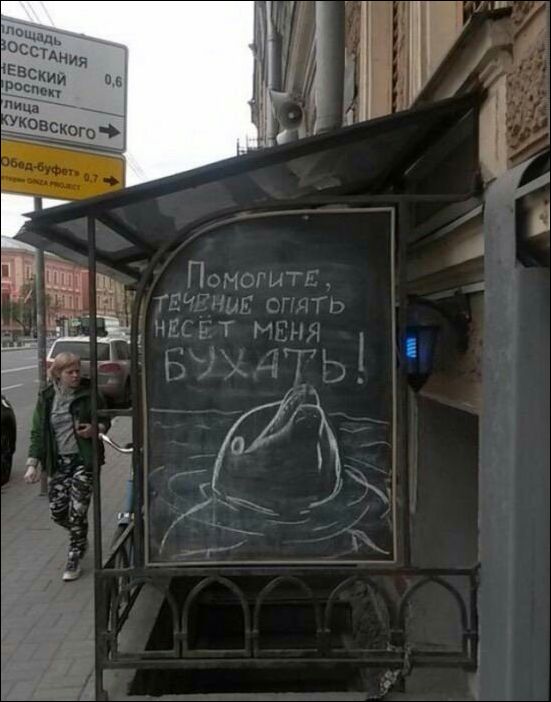 площадь
ВОССТАНИЯ
НЕВСКИЙ 0,6
проспект
улица
ЖУКОВСКОГО
«Обед-буфет» 0,7
GINZA PROJECT
Помогите,
течение опять
несёт меня
БУХАТЬ!